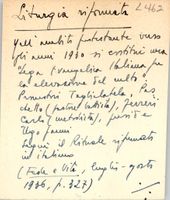 Liturgia riformata L462
Nell'ambito protestante verso
gli anni 1930 si costituì una
Lega Evangelica Italiana per
la elevazione del culto.
Promotori Tagliatela, Pas
chetto (pastore battista), Ferreri
Carlo (metodista), pure
Ugo Janni.
Seguì il Rituale riformato
in italiano
(Fede e Vita, luglio-agosto
1936, p. 327)